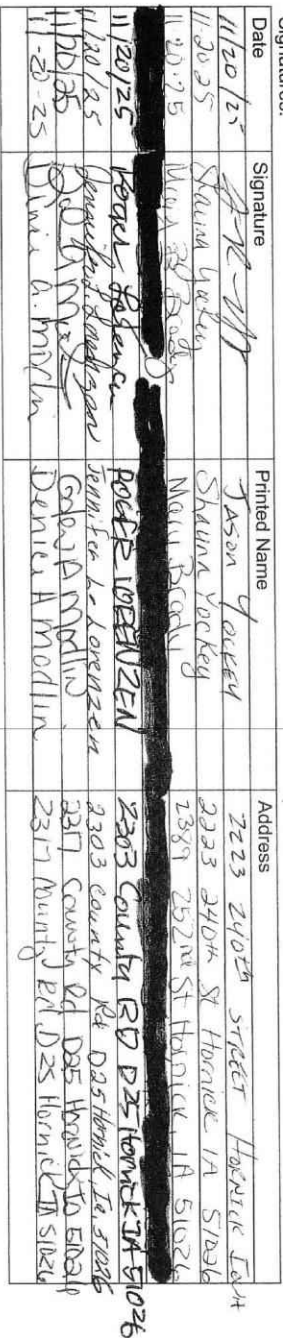 Signatures:
Date Signature Printed Name Address
11/20/25 Jason Yockey 2223 240th STREET HORNICK IOWA
11-20-25 Shaunn Yockey Shaunn Yockey 2223 240th St Hornick IA 51026
11-20-25 Mary Brady 2389 252nd St Hornick, IA 51026
11/20/25 Roger Lorenzen ROGER LORENZEN 2303 County RD D25 Hornick IA 51026
11/20/25 Jennifer L Lorenzen Jennifer L Lorenzen 2303 County Rd D25 Hornick, Ia 51026
11/20/25 A Modlin 2317 County Rd D25 Hornick Ia 51026
11-20-25 Denice A. Modlin Denice A Modlin 2317 County Rd D25 Hornick IA 51026